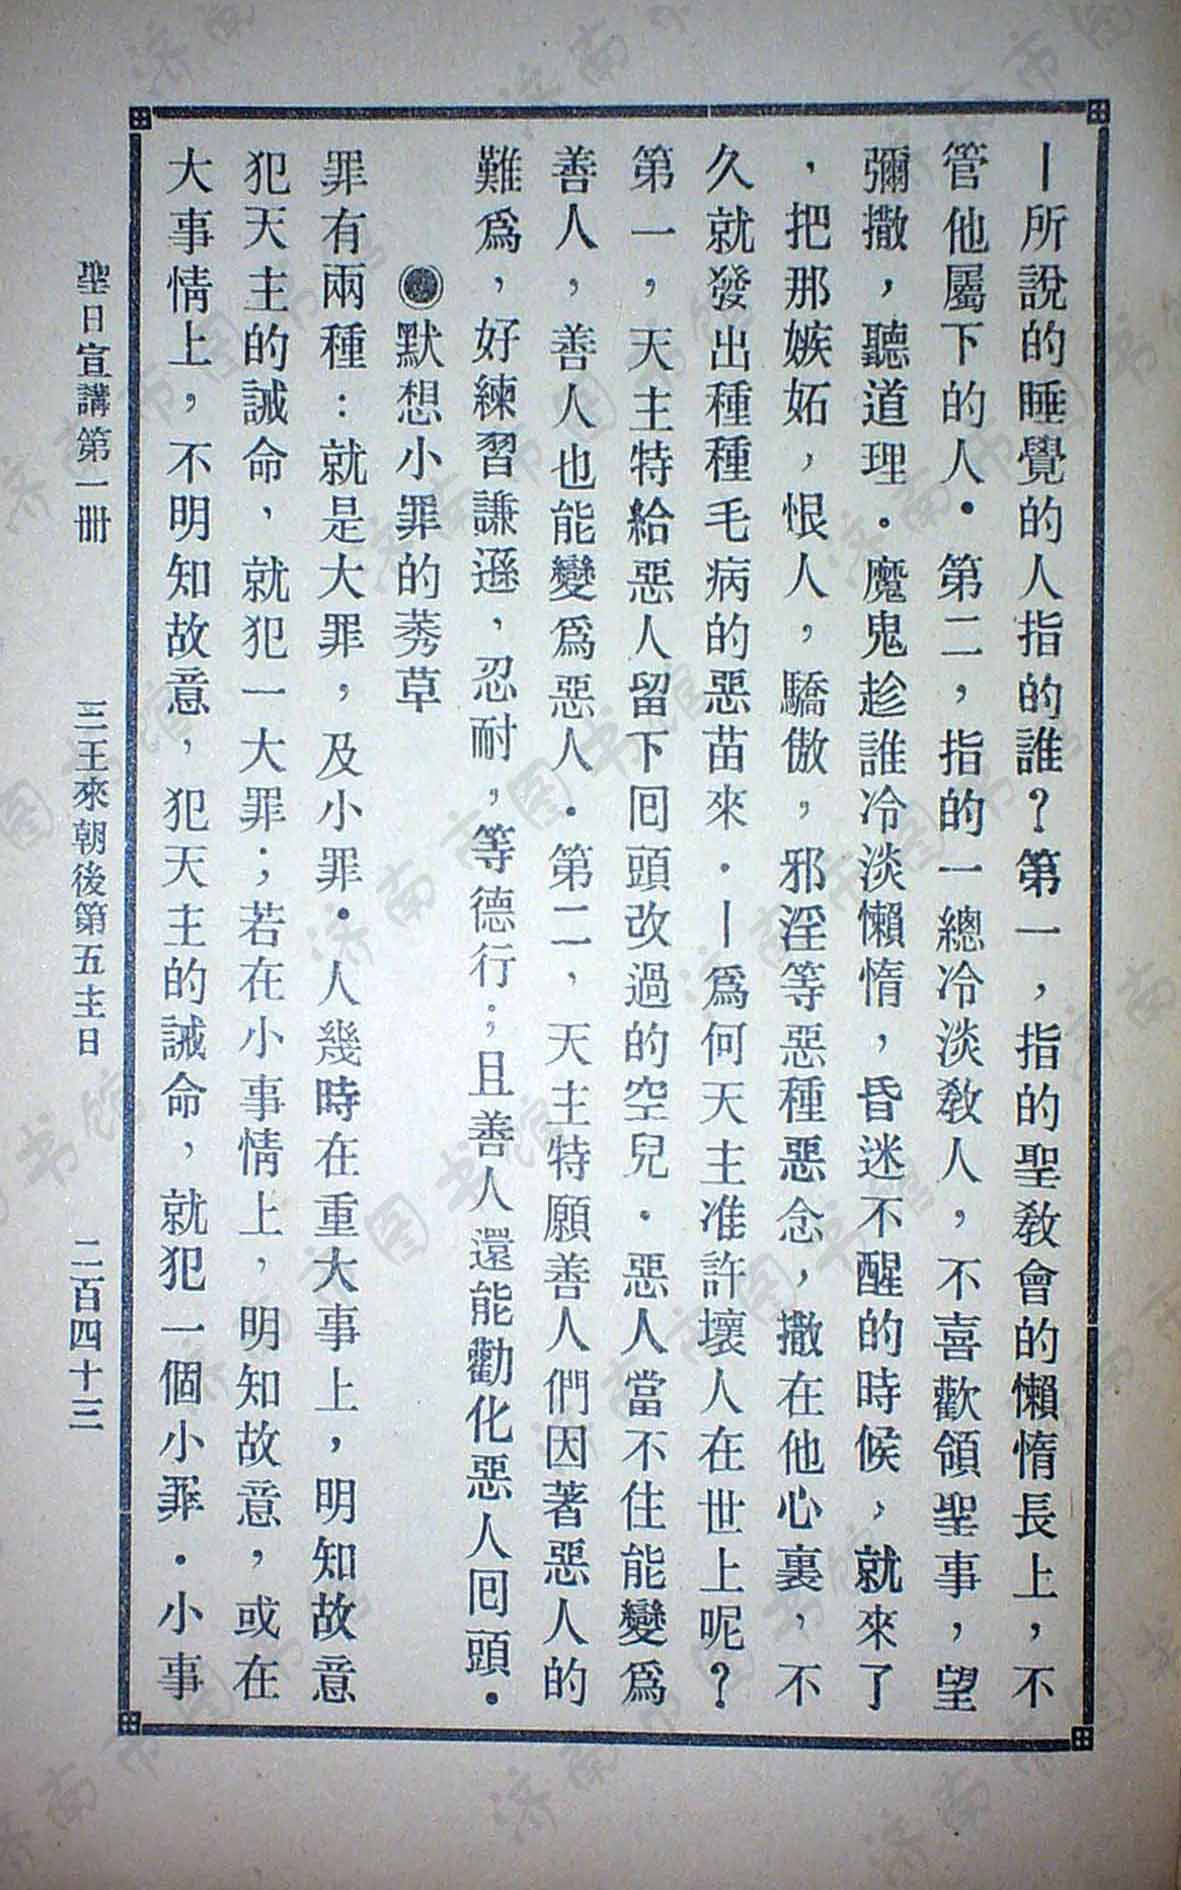 ｜所說的睡覺的人指的誰？第一，指的聖教會的懶惰長上，不
管他屬下的人．第二，指的一總冷淡教人，不喜歡領聖事，望
彌撒，聽道理．魔鬼趁誰冷淡懶惰，昏迷不醒的時候，就來了
，把那嫉妬，恨人，驕傲，邪淫等惡種惡念，撒在他心裏，不
久就發出種種毛病的惡苗來．｜爲何天主准許壞人在世上呢？
第一，天主特給惡人留下囘頭改過的空兒．惡人當不住能變爲
善人，善人也能變爲惡人．第二，天主特願善人們因著惡人的
難爲，好練習謙遜，忍耐，等德行；且善人還能勸化惡人囘頭．
◉默想小罪的莠草
罪有兩種：就是大罪，及小罪．人幾時在重大事上，明知故意
犯天主的誡命，就犯一大罪；若在小事情上，明知故意，或在
大事情上，不明知故意，犯天主的誡命，就犯一個小罪．小事
聖日宣講第一冊　三王來朝後第五主日　二百四十三
济南市图书馆